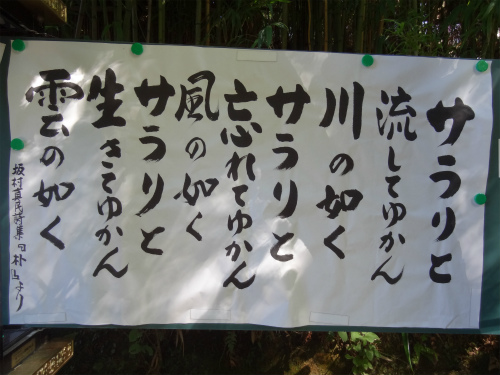 サラリと
流してゆかん
川の如く
サラリと
忘れてゆかん
風の如く
サラリと
生きてゆかん
雲の如く
坂村真民詩集「朴」より